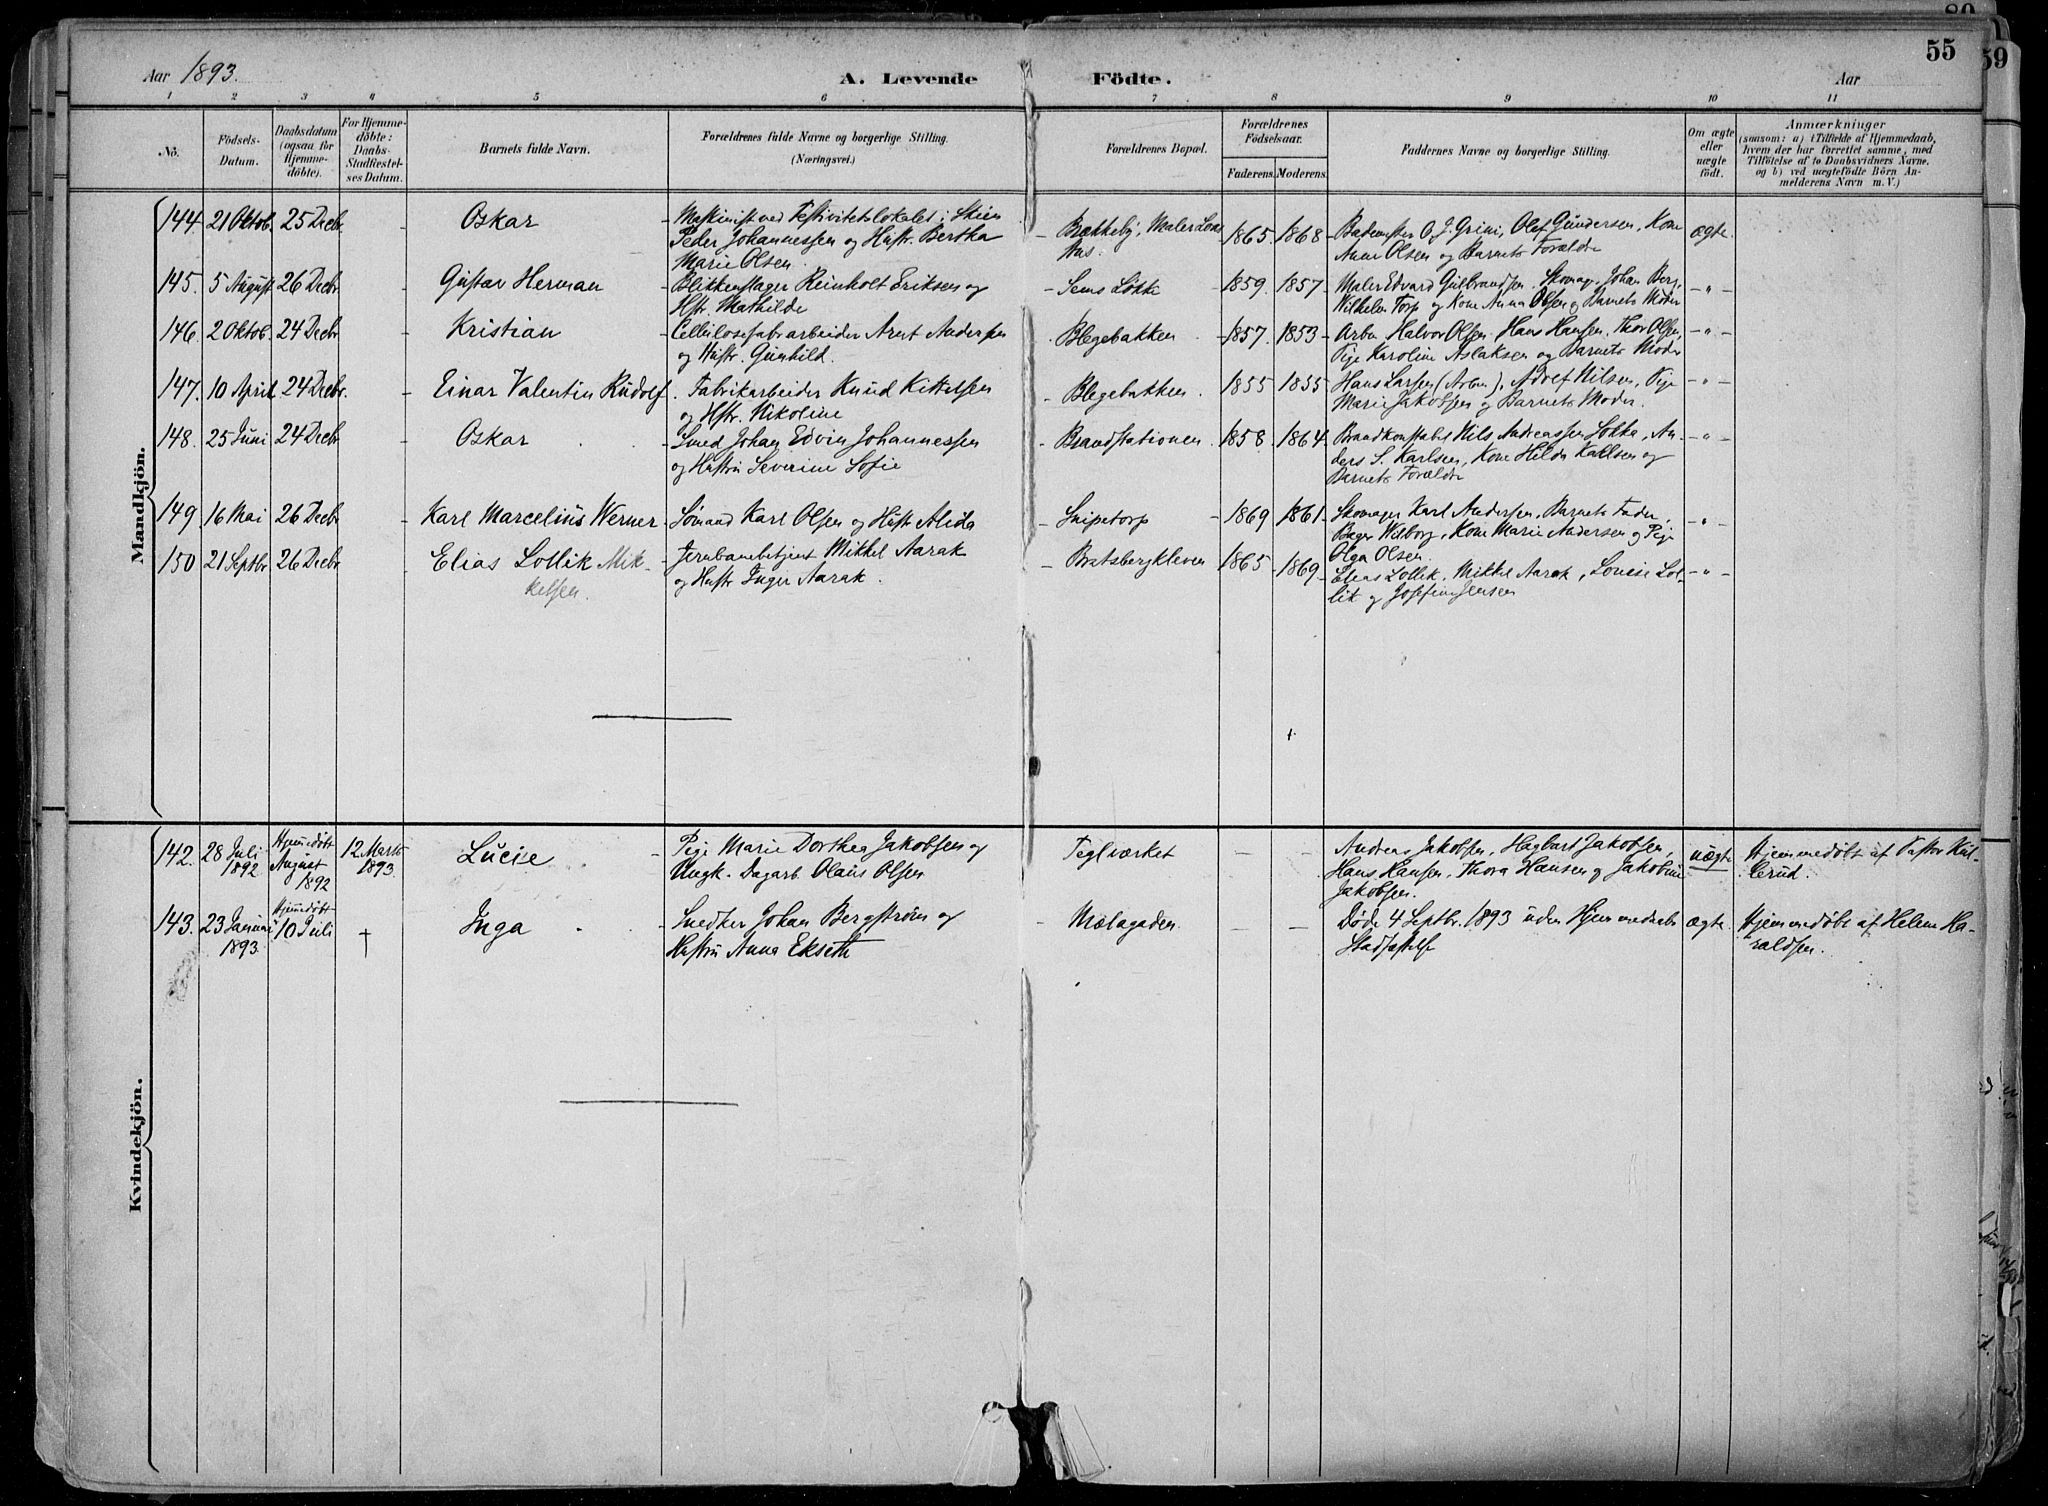 80
59
55
Aar 1893. A. Levende Födte. Aar
1 2 3 4 5 6 7 8 9 10 11
No. Födsels-Datum. Daabsdatum (ogsaa for Hjemmedöbte). For Hjemmedöbte: Daabs-Stadfæstelses Datum. Barnets fulde Navn. Forældrenes fulde Navne og borgerlige Stilling. (Næringsvei.) Forældrenes Bopæl. Forældrenes Födselsaar. Faderens. Moderens. Faddernes Navne og borgerlige Stilling. Om ægte eller uægte födt. Anmærkninger (saasom: a) i Tilfælde af Hjemmedaab, hvem der har forrettet samme, med Tilföielse af to Daabsvidners Navne, og b) ved uægtefödte Börn Anmelderens Navn m. V.)
Mandkjön.
144. 21 Oktob. 25 Decbr. - Oskar - Maskinist ved Festivitetslokalet i Skien - Brækkeby, Maler 1865. 1868 - Bademester O. J. Grini, Olef Gundersen, Kone ægte.
Peder Johannessen og Hustr. Bertha Hus. Anne Olsen og Barnets Forældre
Marie Olsen.
145. 5 August 26 Decbr. - Gustav Herman - Blikkenslager Reinholt Eriksen og - Sems Løkke 1859. 1857 - Maler Edvard Gulbrandsen. Skomag. Johan Berg, -"-
Hstr. Mathilde Wilhelm Torp og Kone Anna Olsen og Barnets Moder
146. 2 Oktob. 24 Decbr. - Kristian - Cellulosefabrarbeider Arnt Andersen - Blegebakken 1857. 1853 - Arbm. Halvor Olsen, Hans Hansen, Thor Olsen, -"-
og Hustr. Gunhild. Pige Karoline Aslaksen og Barnets Moder
147. 10 April 24 Decbr. - Einar Valentin Rudolf. Fabrikarbeider Knud Kittelsen - Blegebakken. 1855 1855 - Hans Larsen (Arbm), Adolf Nilsen, Pige -"-
og Hstr. Nikoline Marie Jakobsen og Barnets Moder.
148. 25 Juni 24 Decbr - Oskar - Smed Johan Edvin Johannessen - Brandstationen 1858. 1864 - Brandkonstabel Nils Andreassen Løkka, An- -"-
og Hustru Severine Sofie ders S. Karlsen, Kone Hilda Karlsen og
Barnets Forældre
149 16 Mai 26 Decbr - Karl Marcelius Werner - Sömand Karl Olsen og Hustr Alida - Snipetorp - 1869 1861 - Skomager Karl Andersen, Barnets Fader, -"-
Bager Wilborg, Kone Marie Andersen og Pige
Olga Olsen.
150 21 Septbr. 26 Decbr - Elias Lollik Mik- - Jernbanebetjent Mikkel Aarak - Bratsbergkleven 1865 - 1869 - Elias Lollik, Mikkel Aarak, Louise Lol- -"-
kelsen. og Hustr Inger Aarak. lik og Josefine Jensen
Kvindekjön.
142. 28 Juli 1892 Hjemmedøbt August 1892 12 Marts 1893. Lucie - Pige Marie Dorthea Jakobsen og Teglværket - - Andreas Jakobsen, Hagbart Jakobsen, uægte Hjemmedøbt af Pastor Kul-
Ungk. Dagarb. Olaus Olsen Hans Hansen, Thora Hansen og Jakobine lerud.
Jakobsen.
143. 23 Januar 1893. Hjemmedøbt 10 Juli † Inga - Snedker Johan Bergstrøm og - Mælagaden. - - Døde 4 Septbr. 1893 uden Hjemmedaabs ægte. Hjemmedøbt af Helene Ha-
Hustru Anna Ekseth Stadfæstelse raldsen.